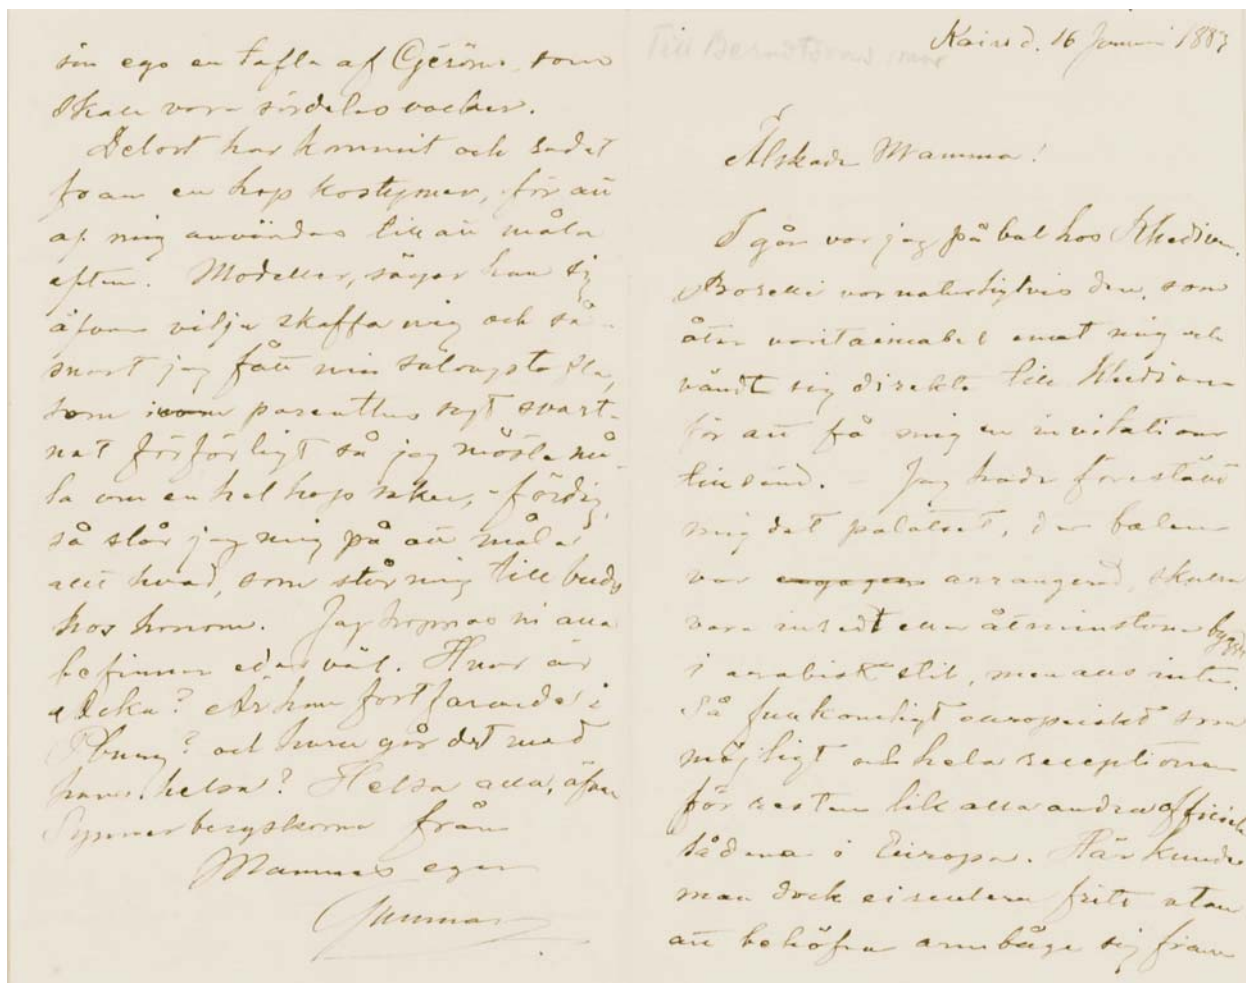 sin ego en tafla af Gérôme, som
skall vara särdeles vacker.
Delort har kommit och sadet
fram en hop kostymer, för att
af mig användas till att måla
efter. Modeller, säger han sig
äfven vilja skaffa mig och så-
snart jag fått min
som parenthes sagt svart-
nat förfärligt så jag måste må-
la om en hel hop saker, - färdig,
så slår jag mig på att måla
allt hvad, som står mig till buds
hos honom. Jag hoppas ni alla
befinner eder väl. Hvar är
Är han fortfarande i
och huru går det med
hans helsa? Helsa alla, äfven
från
Mammas egen
Gunnar
Till Berndtsons mor
Kairo d. 16 Januari 1883
Älskade Mamma!
I går var jag på bal hos Khediven.
var naturligtvis den, som
åter varit aimabel emot mig och
vändt sig direkte till Khediven
för att få mig en invitation
tillsänd. – Jag hade föreställt
mig det palatset, der balen
var engagera arrangerad, skulle
vara inredt eller åtminstone bygdt
i arabisk stil, men alls inte.
Så fullkomligt europeiskt som
möjligt och hela receptionen
för resten lik alla andra officiela
sådana i Europa. Här kunde
man dock cirkulera fritt utan
att behöfva armbåga sig fram